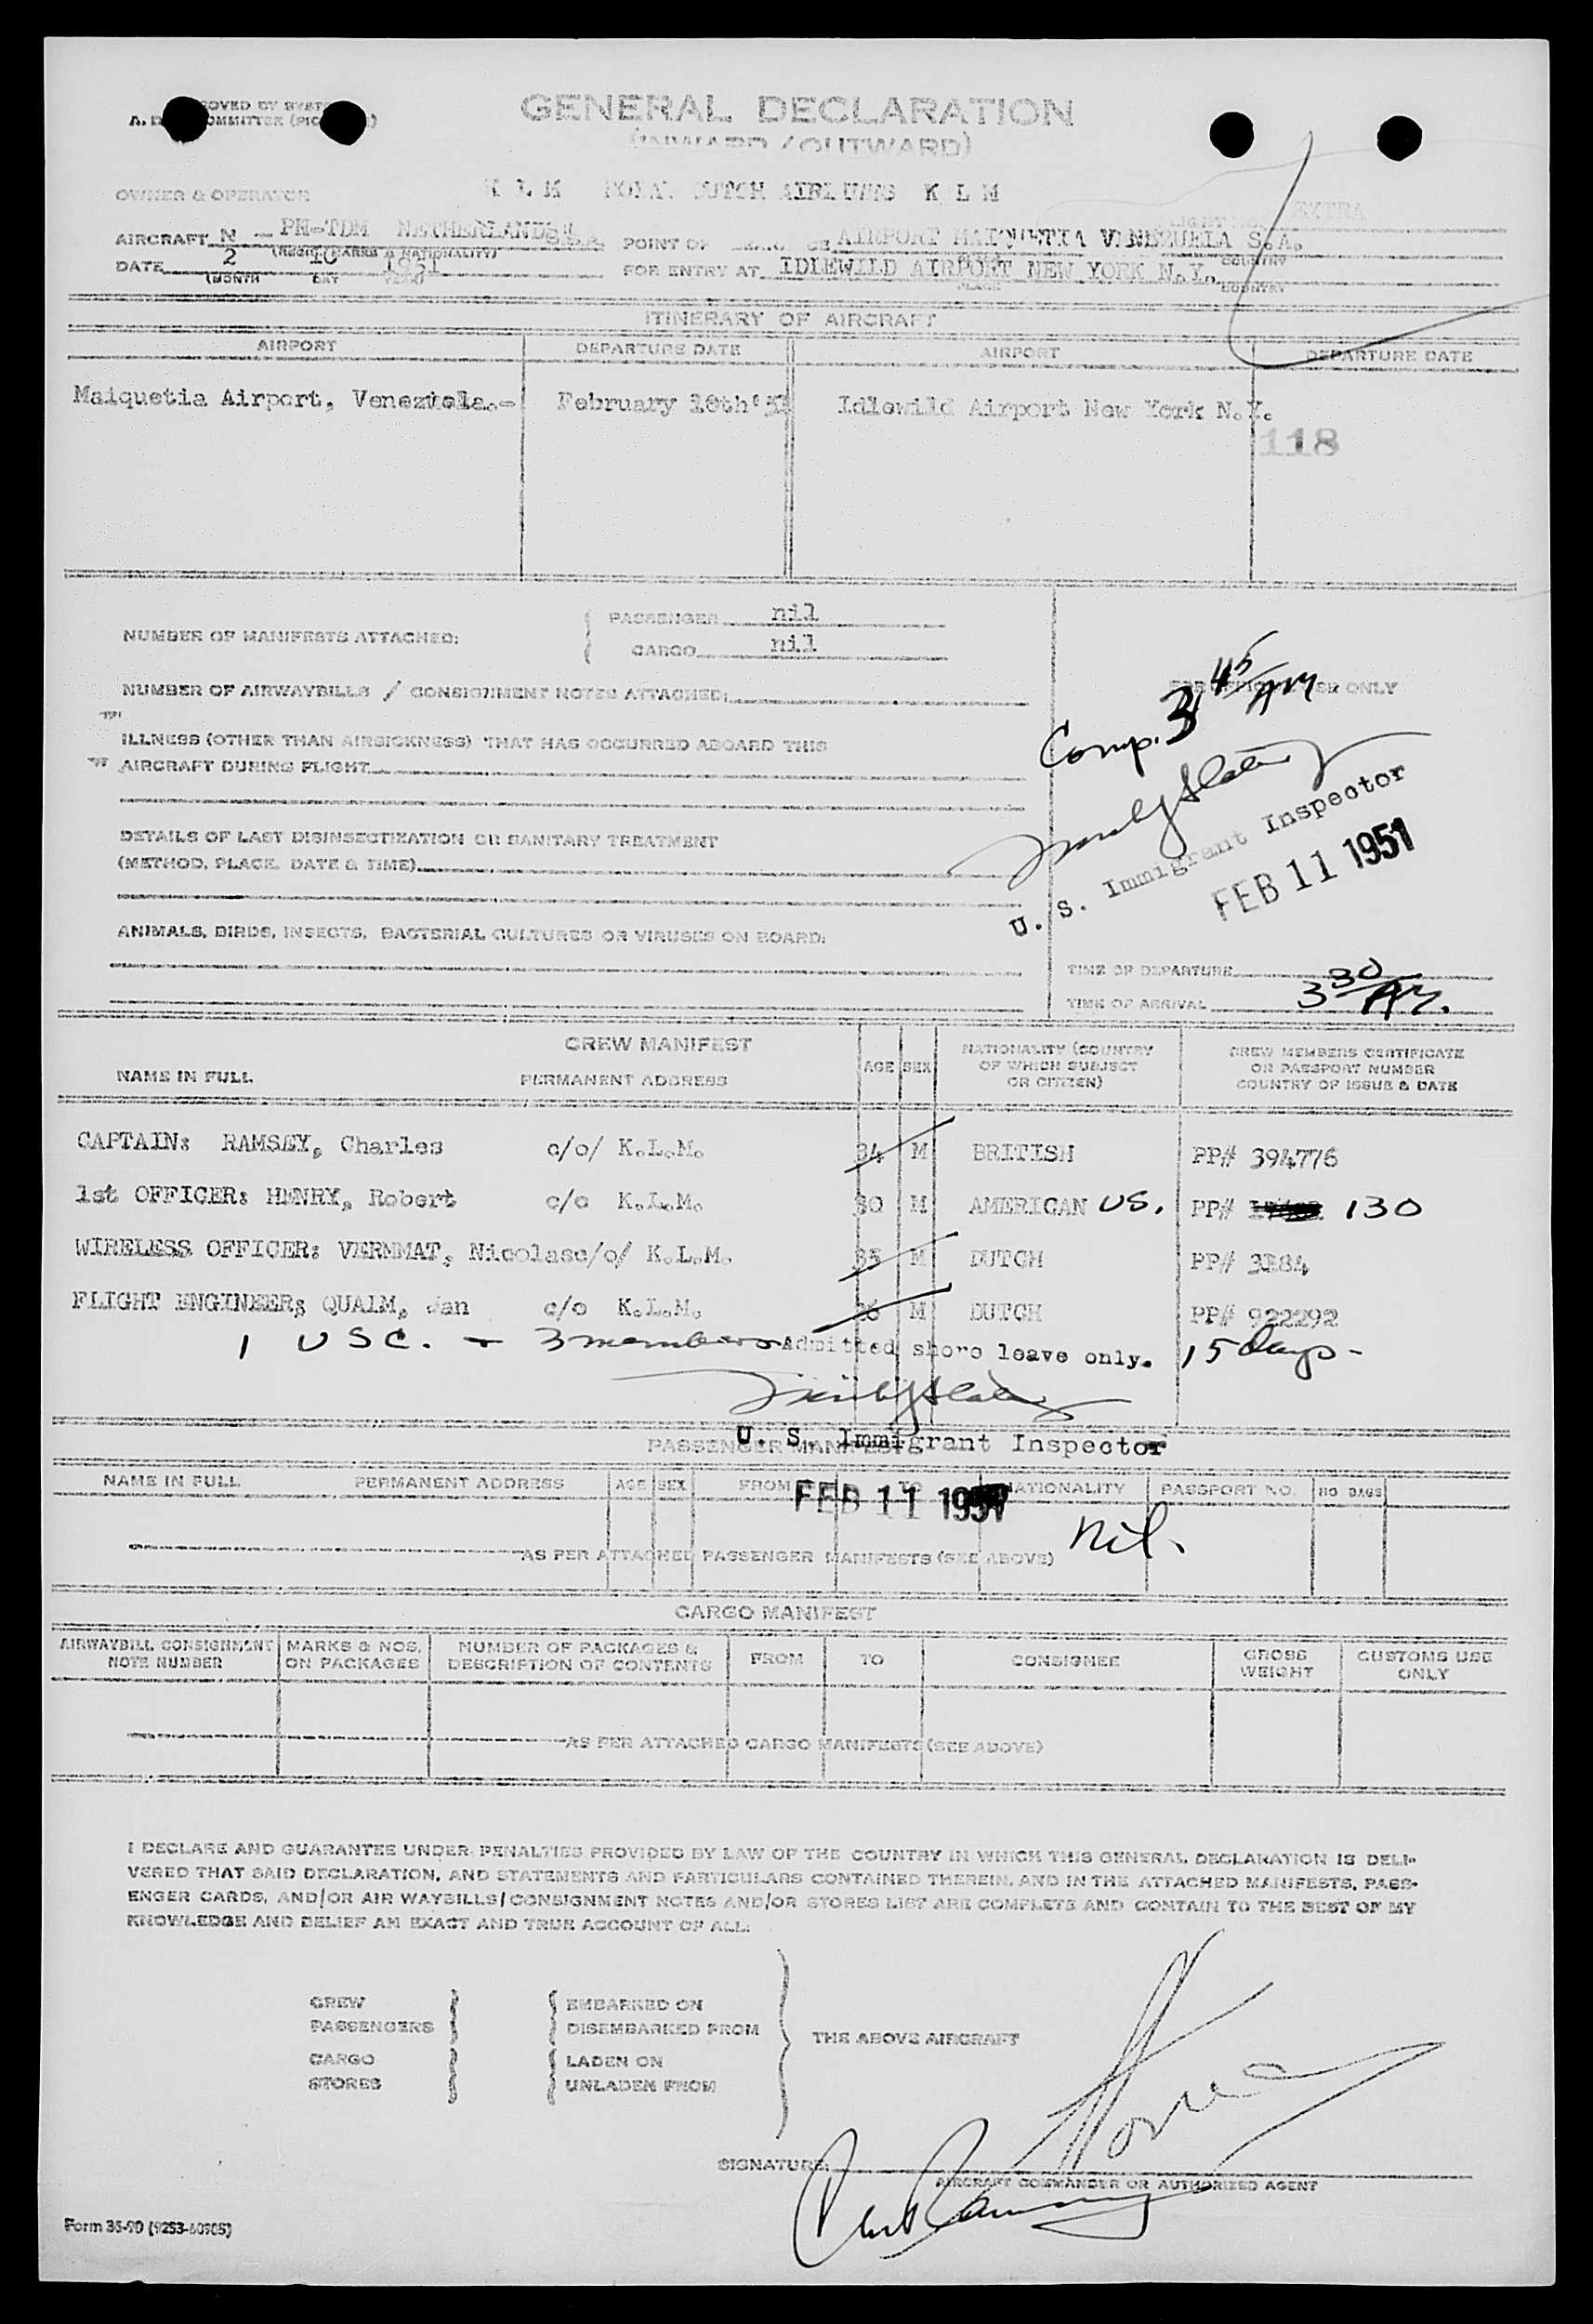 GENERAL DECLARATION
(INWARD / OUTWARD)
OWNER & OPERATOR K L M ROYAL DUTCH AIRLINES K L M
EXTRA
AIRCRAFT N - PH-TDM NETHERLANDS POINT OF AIRPORT MAIQUETIA VENEZUELA S.A.
(REGIS. MARKS & NATIONALITY) COUNTRY
DATE 2 10 1951 FOR ENTRY AT IDLEWILD AIRPORT NEW YORK N.Y.
(MONTH DAY YEAR) PLACE COUNTRY
ITINERARY OF AIRCRAFT
AIRPORT DEPARTURE DATE AIRPORT DEPARTURE DATE
Maiquetia Airport, Venezuela.- February 10th'51 Idlewild Airport New York N.Y.
118
NUMBER OF MANIFESTS ATTACHED: PASSENGER nil
CARGO nil
NUMBER OF AIRWAYBILLS / CONSIGNMENT NOTES ATTACHED:
FOR OFFICIAL USE ONLY
Comp. 3 45 AM
ILLNESS (OTHER THAN AIRSICKNESS) THAT HAS OCCURRED ABOARD THIS
AIRCRAFT DURING FLIGHT
DETAILS OF LAST DISINSECTIZATION OR SANITARY TREATMENT
(METHOD, PLACE, DATE & TIME)
U. S. Immigrant Inspector
FEB 11 1951
ANIMALS, BIRDS, INSECTS, BACTERIAL CULTURES OR VIRUSES ON BOARD:
TIME OF DEPARTURE
TIME OF ARRIVAL 3 30 AM.
CREW MANIFEST
NAME IN FULL PERMANENT ADDRESS AGE SEX NATIONALITY (COUNTRY OF WHICH SUBJECT OR CITIZEN) CREW MEMBERS CERTIFICATE OR PASSPORT NUMBER COUNTRY OF ISSUE & DATE
CAPTAIN: RAMSEY, Charles c/o/ K.L.M. 34 M BRITISH PP# 394776
1st OFFICER: HENRY, Robert c/o K.L.M. 30 M AMERICAN US. PP# 130
WIRELESS OFFICER: VERMMAT, Nicolas c/o/ K.L.M. 35 M DUTCH PP# 3184
FLIGHT ENGINEER; QUALM, Jan c/o K.L.M. 26 M DUTCH PP# 922292
1 USC. - 3 members Admitted shore leave only. 15 days -
U. S. Immigrant Inspector
PASSENGER MANIFEST
NAME IN FULL PERMANENT ADDRESS AGE SEX FROM TO NATIONALITY PASSPORT NO. NO BAGS
FEB 11 1951
nil.
AS PER ATTACHED PASSENGER MANIFESTS (SEE ABOVE)
CARGO MANIFEST
AIRWAYBILL CONSIGNMENT NOTE NUMBER MARKS & NOS. ON PACKAGES NUMBER OF PACKAGES & DESCRIPTION OF CONTENTS FROM TO CONSIGNEE GROSS WEIGHT CUSTOMS USE ONLY
AS PER ATTACHED CARGO MANIFESTS (SEE ABOVE)
I DECLARE AND GUARANTEE UNDER PENALTIES PROVIDED BY LAW OF THE COUNTRY IN WHICH THIS GENERAL DECLARATION IS DELI-
VERED THAT SAID DECLARATION, AND STATEMENTS AND PARTICULARS CONTAINED THEREIN, AND IN THE ATTACHED MANIFESTS, PASS-
ENGER CARDS, AND/OR AIR WAYBILLS/CONSIGNMENT NOTES AND/OR STORES LIST ARE COMPLETE AND CONTAIN TO THE BEST OF MY
KNOWLEDGE AND BELIEF AN EXACT AND TRUE ACCOUNT OF ALL:
CREW EMBARKED ON
PASSENGERS DISEMBARKED FROM
THE ABOVE AIRCRAFT
CARGO LADEN ON
STORES UNLADEN FROM
SIGNATURE:
AIRCRAFT COMMANDER OR AUTHORIZED AGENT
Form 35-90 (9253-60905)